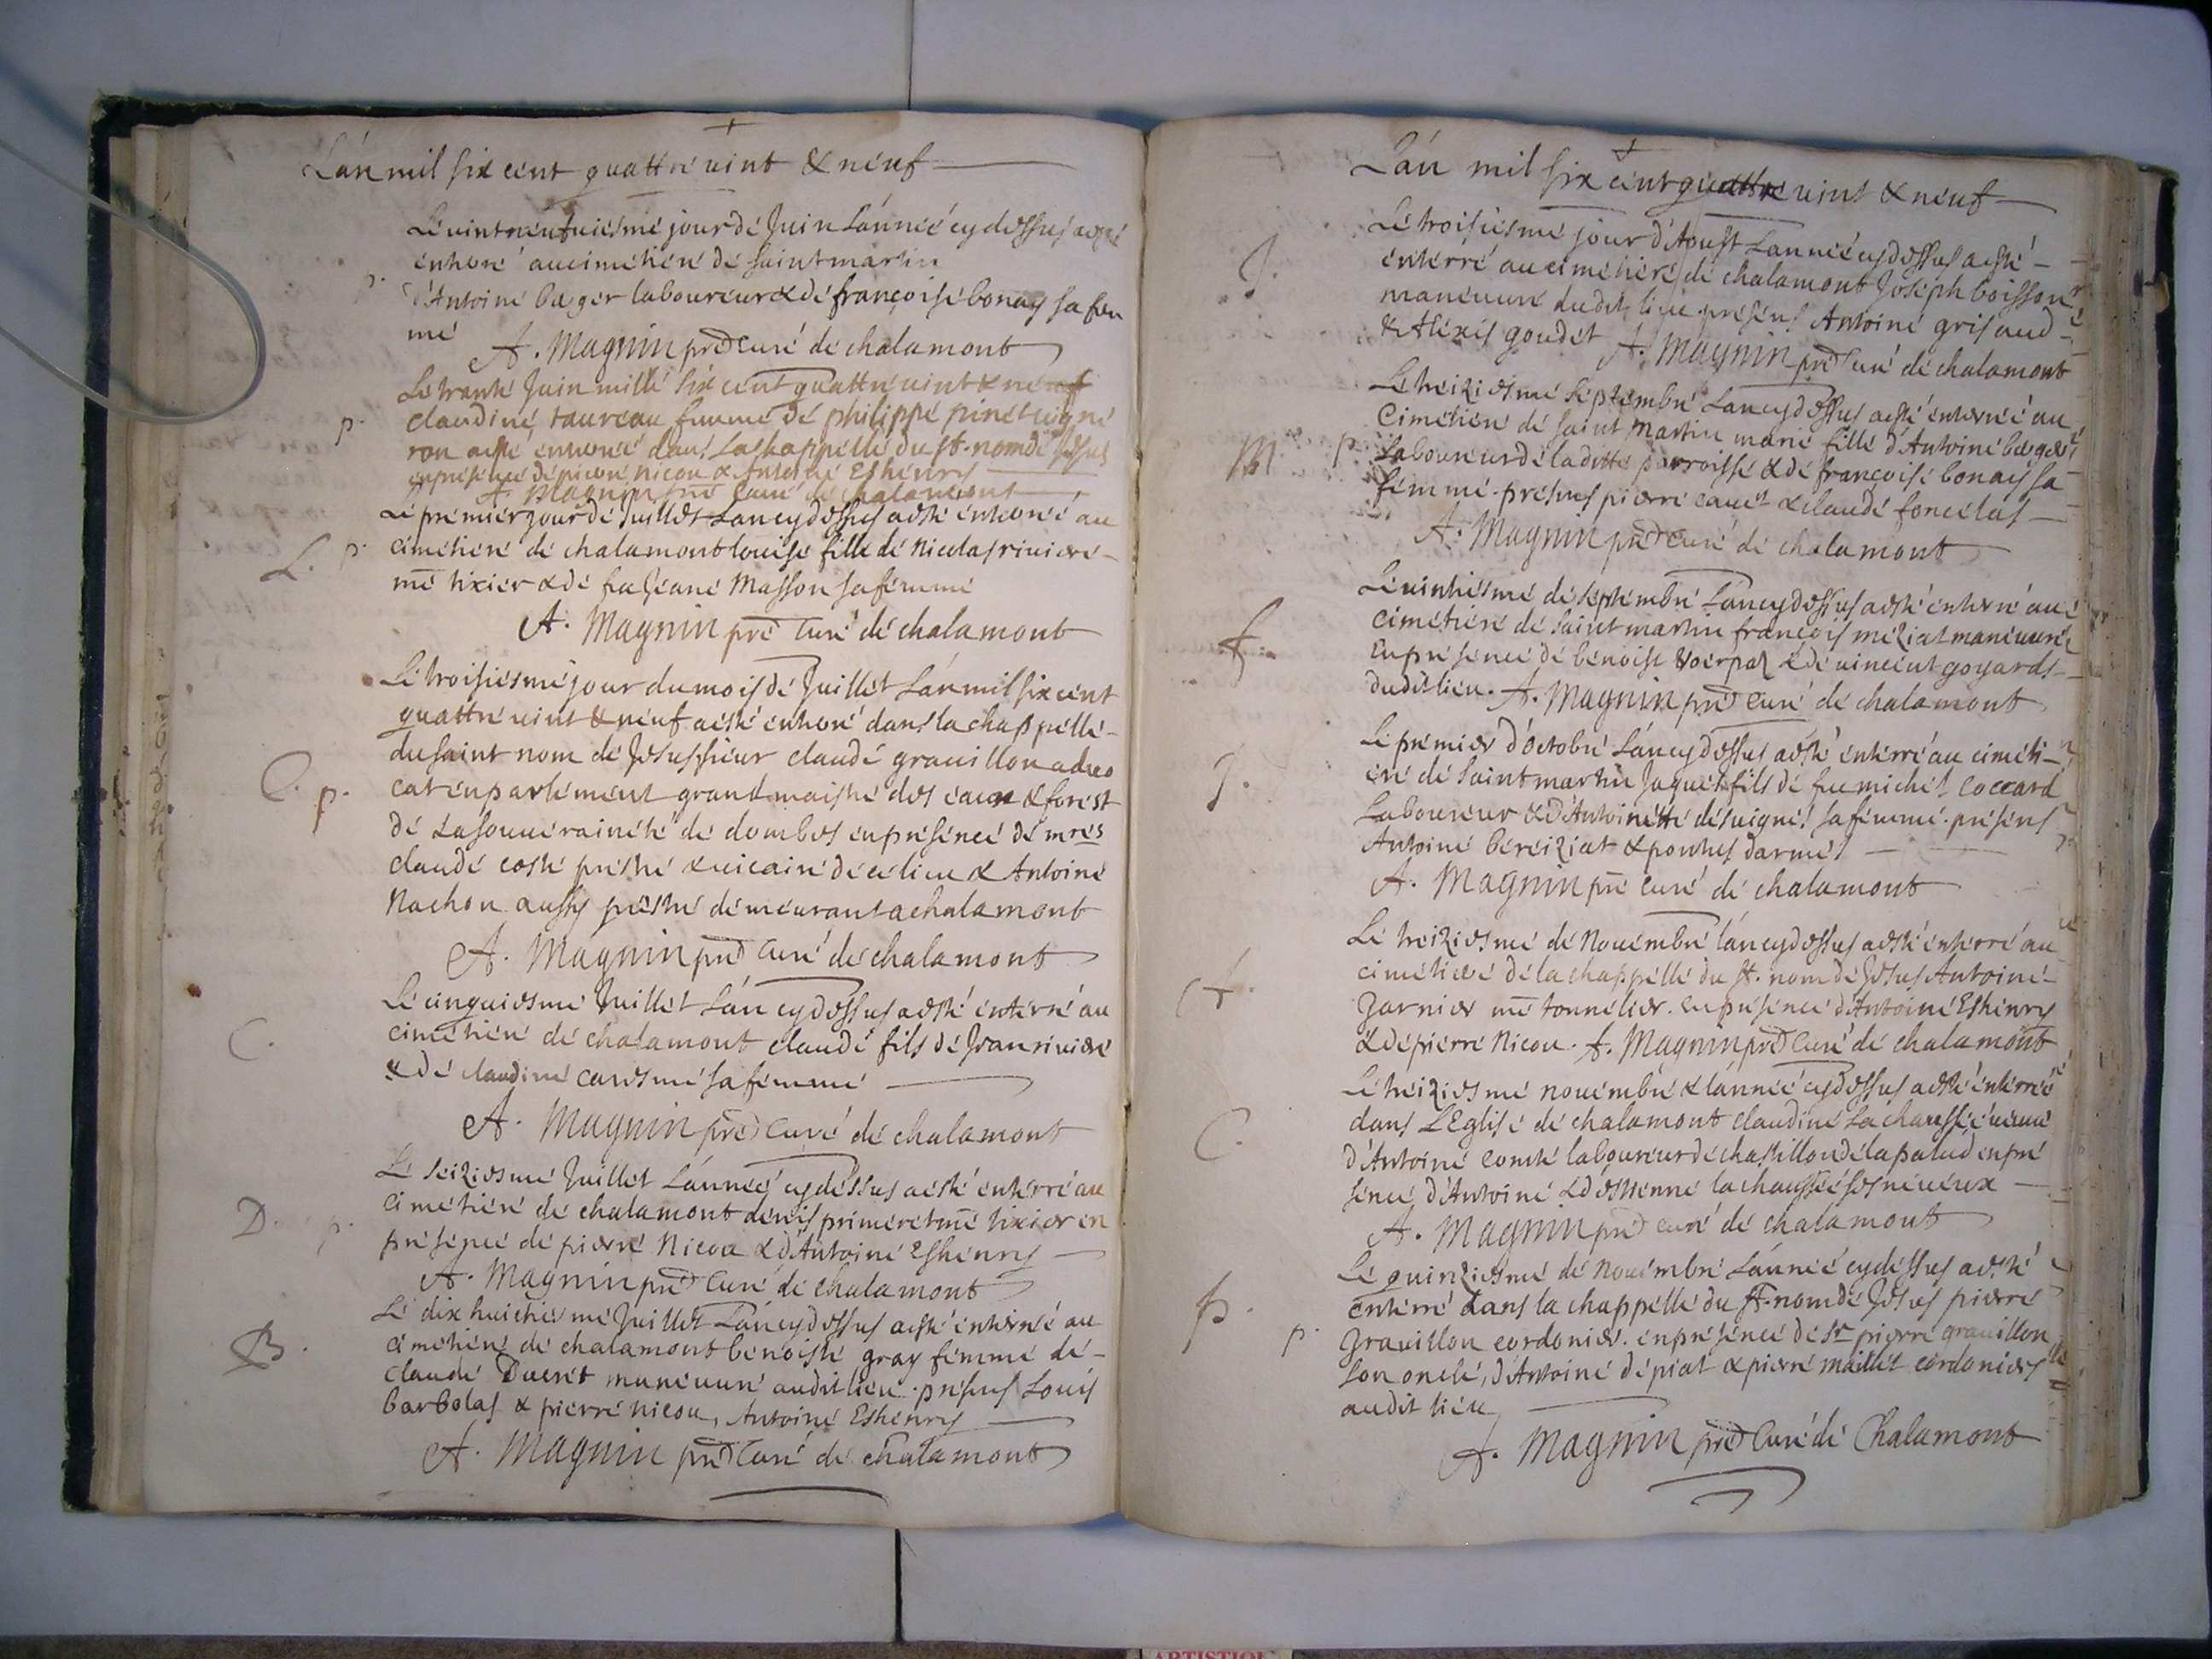 L'an mil six cent quattre vint & neuf
Le vintneufuiesme jour de Juin L'année cy dessus aesté
enterré au cimetiere de saint martin
d'Antoine berger laboureur & de françoise bonay sa fem
me
A. Magnin pre Curé de chalamont
Le trente Juin mille six cent quattre vint & neuf
p. claudine taureau femme de philippe pinet vigne
ron aesté enterrée dans La chappelle du st. nom de Jesus
en presence de pierre nicou & Antoine Eshenry
A. Magnin pre Curé de chalamont
Le premier jour de Juillet L'an cy dessus aesté enterrée au
L. p. cimetiere de chalamont louise fille de Nicolas riuiere
me tixier & de fue Jeane Masson sa femme
A. Magnin pre Curé de chalamont
Le troisiesme jour du mois de Juillet L'an mil six cent
quattre vint & neuf aesté enterré dans la chappelle
du saint nom de Jesus sieur claude grauillon aduo
C. p. cat en parlement grand maistre des eaux & forest
de La souueraineté de dombes en presence de mres
claude coste prestre & uicaire de ce lieu & Antoine
Nachon aussy prestre demeurant a chalamont
A. Magnin pre Curé de chalamont
Le cinquiesme Juillet L'an cy dessus aesté enterré au
C. cimetiere de chalamont claude fils de Jean riuiere
& de claudine caresme sa femme
A. Magnin pre Curé de chalamont
Le seiziesme Juillet L'année cy dessus aesté enterré au
D. p. cimetiere de chalamont denis primeret me tixier en
presence de pierre Nicou & d'Antoine Eshenry
A. Magnin pre Curé de chalamont
Le dix huictiesme Juillet L'an cy dessus aesté enterrée au
B. cimetiere de chalamont benoiste gray femme de
claude Ducret maneuure audit lieu. presens Louis
barbolas & pierre nicou, Antoine Eshenry
A. Magnin pre Curé de chalamont
L'an mil six cent quattre vint & neuf
Le troisiesme jour d'Aoust L'année cy dessus aesté
J. enterré au cimetiere de chalamont Joseph boisson
maneuure dudit lieu presens Antoine grisaud
& Alexis goudet A. Magnin pre Curé de chalamont
Le treiziesme septembre L'an cy dessus aesté enterrée au
Cimetiere de saint Martin marie fille d'Antoine berger
M p Laboureur de la ditte parroisse & de françoise bonay sa
femme. presens pierre cauet & claude foncelas
A. Magnin pre Curé de chalamont
Le vintiesme de septembre L'an cy dessus aesté enterré au
cimetiere de saint martin françois meziat maneuure
f. En presence de benoist & de vincent goyards
dudit lieu. A. Magnin pre Curé de chalamont
Le premier d'octobre L'an cy dessus aesté enterré au cimeti-
J. ere de saint martin Jaques fils de feu michel coccard
Laboureur & d'Antoinette desuignes sa femme. presens
Antoine bereiziat & ponthus darmes
A. Magnin pre Curé de chalamont
Le treiziesme de Nouembre l'an cy dessus aesté enterré au
A. cimetiere de la chappelle du st. nom de Jesus Antoine
Garnier me tonnelier. en presence d'Antoine Eshenry
& de pierre Nicou. A. Magnin pre Curé de chalamont
Le treiziesme nouembre & l'année cy dessus aesté enterrée
C. dans L'Eglise de chalamont claudine La chaussée veuue
d'Antoine comte laboureur de chastillon de la palud en pre
sence d'Antoine & d'estienne la chaussée ses neueux
A. Magnin pre curé de chalamont
Le quinziesme de Nouembre L'année cy dessus aesté
P. enterré dans la chappelle du st. nom de Jesus pierre
p. grauillon cordonier. en presence de sr pierre grauillon
son oncle, d'Antoine depiat & pierre maillet cordoniers
audit lieu
A. Magnin pre Curé de Chalamont